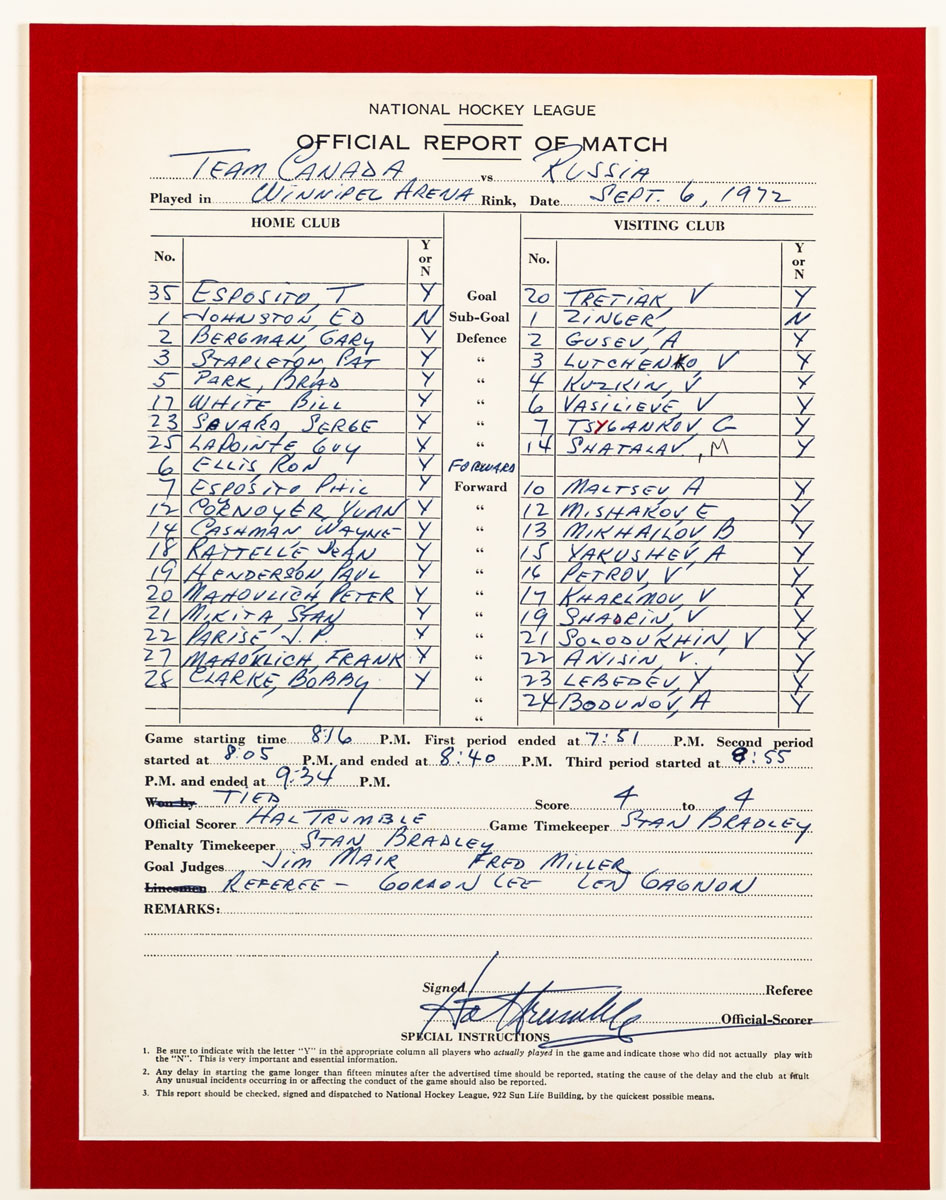 NATIONAL HOCKEY LEAGUE
OFFICIAL REPORT OF MATCH
TEAM CANADA vs RUSSIA
Played in WINNIPEG ARENA Rink, Date SEPT. 6, 1972
HOME CLUB VISITING CLUB
No. Y or N No. Y or N
35 ESPOSITO, T Y Goal 20 TRETIAK V Y
1 JOHNSTON, ED N Sub-Goal 1 ZINGER N
2 BERGMAN, GARY Y Defence 2 GUSEV, A Y
3 STAPLETON, PAT Y " 3 LUTCHENKO V Y
5 PARK, BRAD Y " 4 KUZKIN, V Y
17 WHITE BILL Y " 6 VASILIEVE, V Y
23 SAVARD, SERGE Y " 7 TSYGANKOV G Y
25 LAPOINTE GUY Y " 14 SHATALAV, M Y
6 ELLIS RON Y FORWARD
7 ESPOSITO PHIL Y Forward 10 MALTSEV A Y
12 CORNOYER, YVAN Y " 12 MISHAKOV E Y
14 CASHMAN WAYNE Y " 13 MIKHAILOV B Y
18 RATTELLE JEAN Y " 15 YAKUSHEV, A Y
19 HENDERSON, PAUL Y " 16 PETROV, V Y
20 MAHOVLICH PETER Y " 17 KHARLMOV, V Y
21 MIKITA STAN Y " 19 SHADRIN, V Y
22 PARISE, J.P. Y " 21 SOLODUKHIN, V Y
27 MAHOVLICH, FRANK Y " 22 ANISIN, V. Y
28 CLARKE, BOBBY Y " 23 LEBEDEV, Y Y
" 24 BODUNOV, A Y
"
Game starting time 8:16 P.M. First period ended at 7:51 P.M. Second period
started at 8:05 P.M. and ended at 8:40 P.M. Third period started at 8:55
P.M. and ended at 9:34 P.M.
Won by TIED Score 4 to 4
Official Scorer HAL TRUMBLE Game Timekeeper STAN BRADLEY
Penalty Timekeeper STAN BRADLEY
Goal Judges JIM MAIR FRED MILLER
Linesmen REFEREE - GORDON LEE LEN GAGNON
REMARKS:
Signed Referee
Hal Trumble Official-Scorer
SPECIAL INSTRUCTIONS
1. Be sure to indicate with the letter "Y" in the appropriate column all players who actually played in the game and indicate those who did not actually play with
the "N". This is very important and essential information.
2. Any delay in starting the game longer than fifteen minutes after the advertised time should be reported, stating the cause of the delay and the club at fault
Any unusual incidents occurring in or affecting the conduct of the game should also be reported.
3. This report should be checked, signed and dispatched to National Hockey League, 922 Sun Life Building, by the quickest possible means.